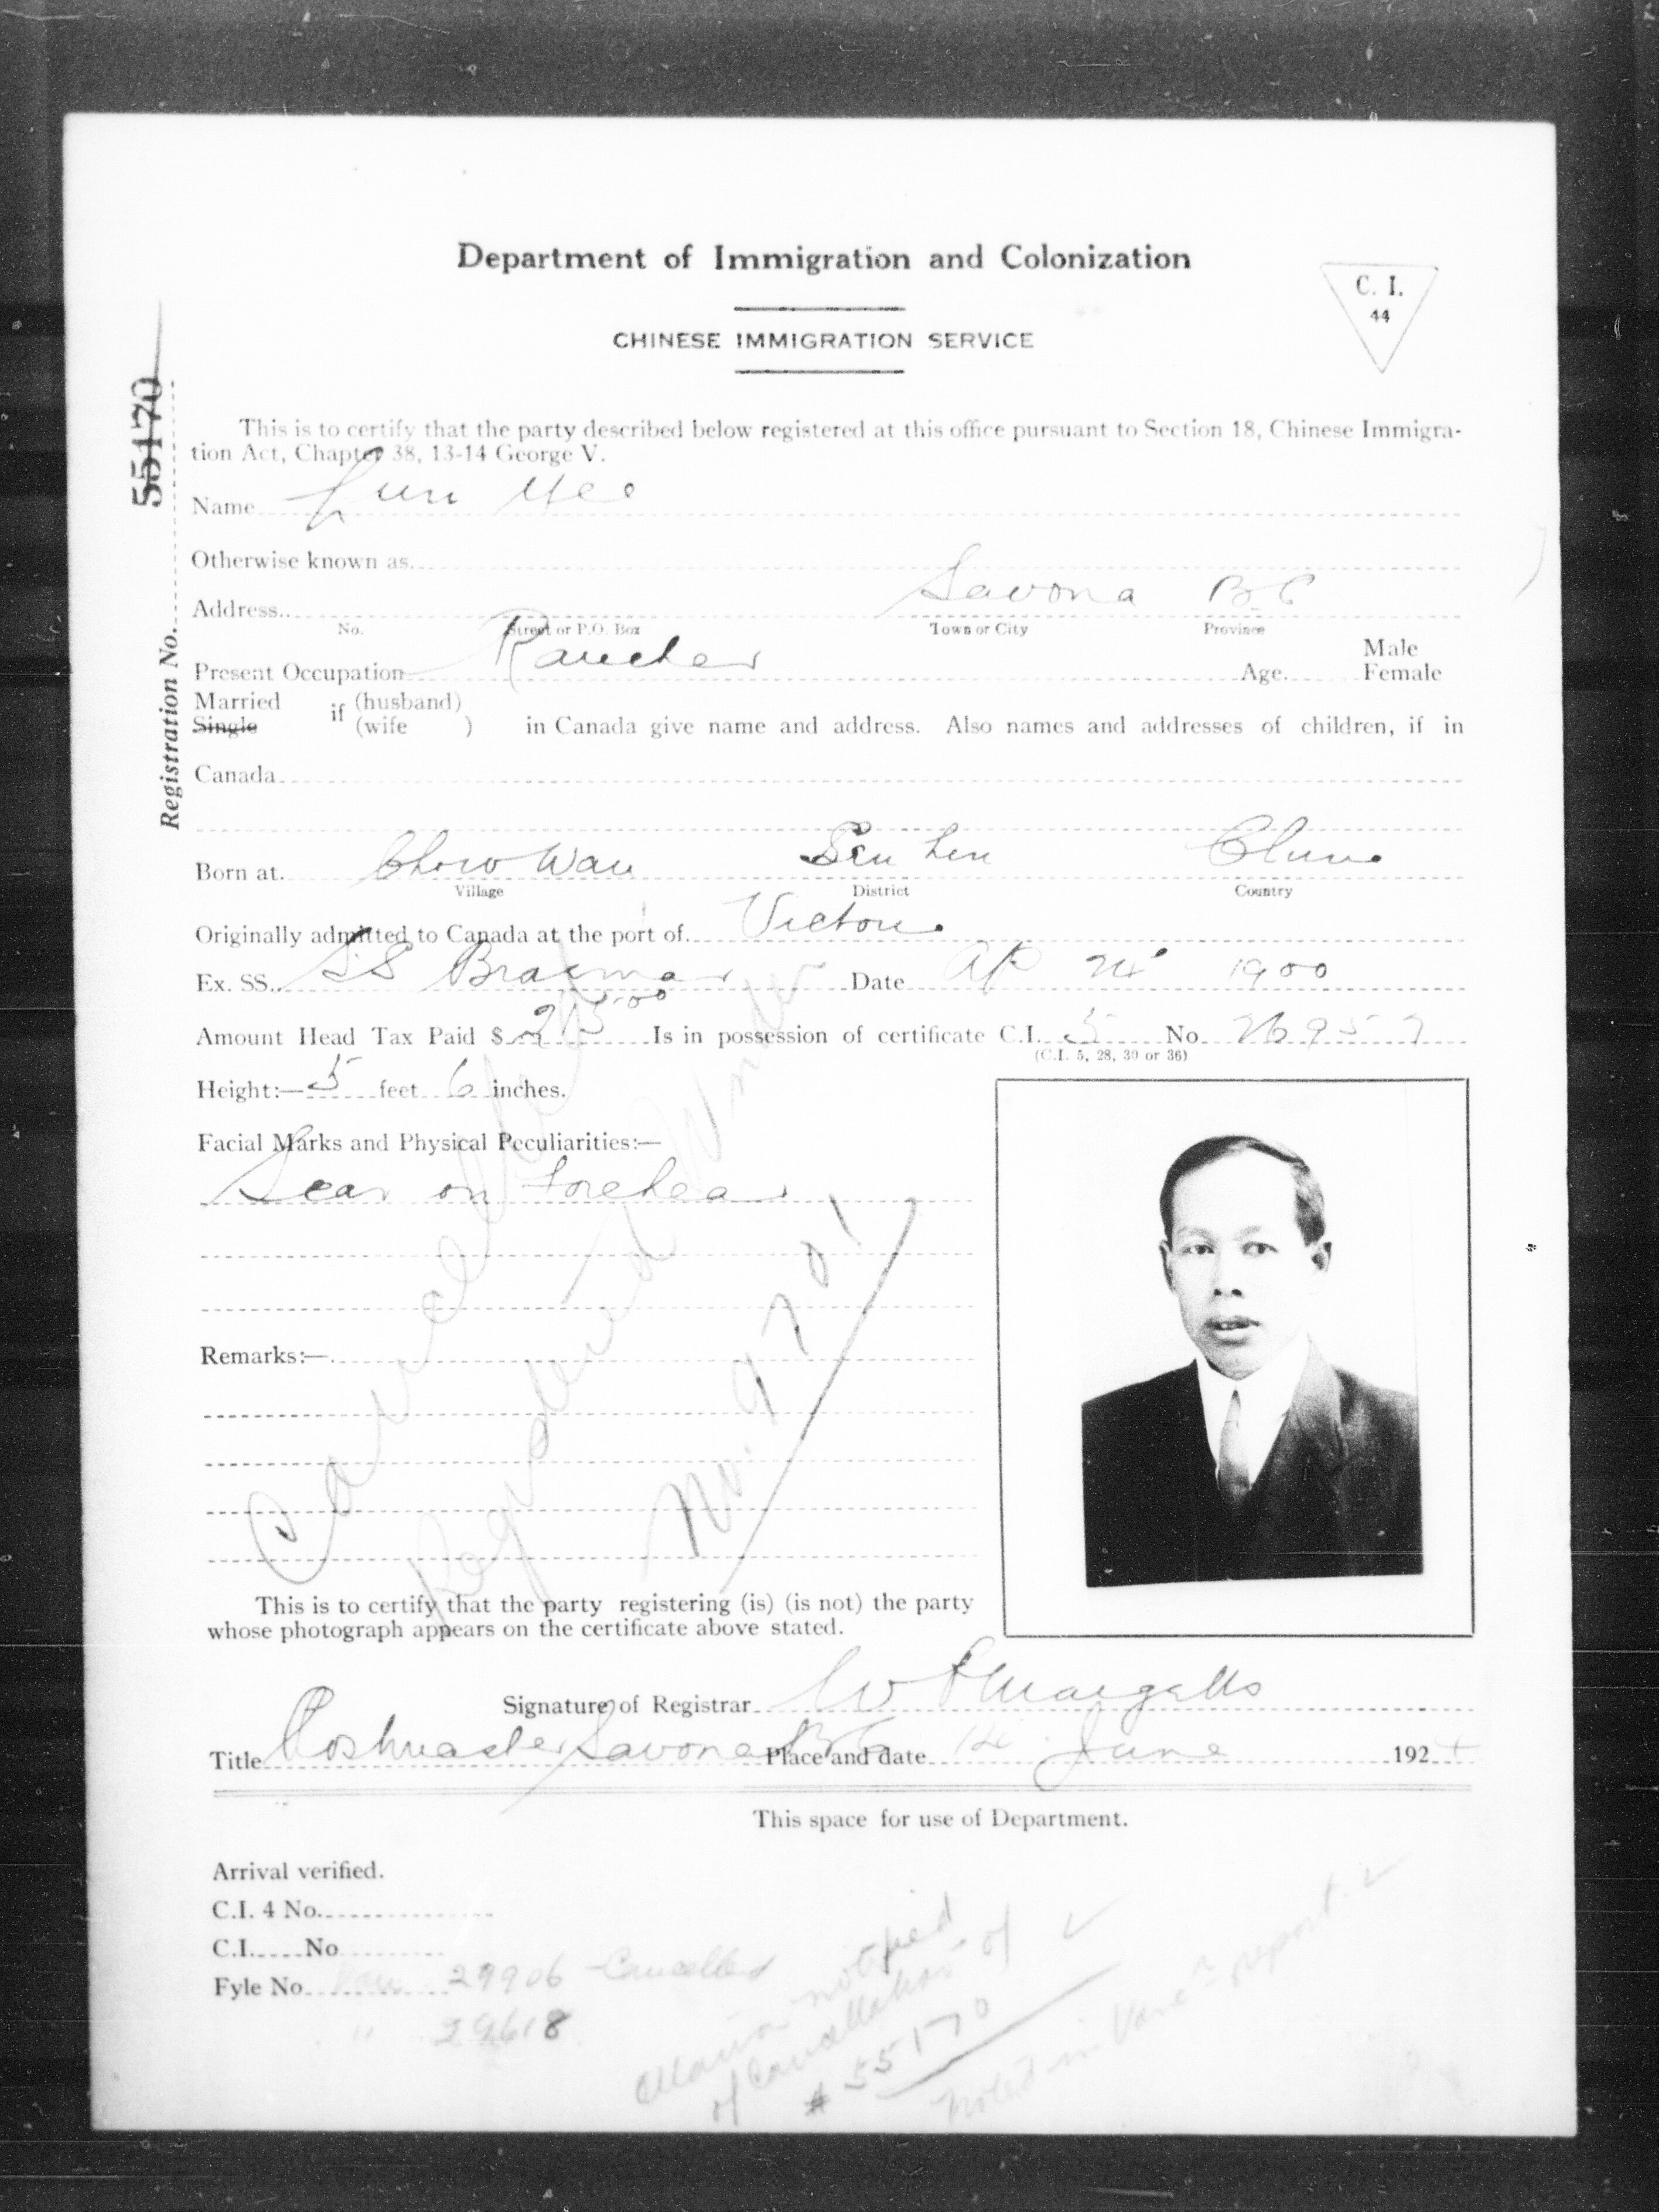 Department of Immigration and Colonization
CHINESE IMMIGRATION SERVICE
C. I.
44
Registration No. 55170
This is to certify that the party described below registered at this office pursuant to Section 18, Chinese Immigra-
tion Act, Chapter 38, 13-14 George V.
Name Lun Yee
Otherwise known as
Address Savona B.C
No. Street or P.O. Box Town or City Province
Present Occupation Rancher Age Male Female
Married Single if (husband) (wife ) in Canada give name and address. Also names and addresses of children, if in
Canada
Born at Chow Wan Sun Hen China
Village District Country
Originally admitted to Canada at the port of Victoria
Ex. SS. SS Braemar Date Ap 24 1900
Amount Head Tax Paid $ Is in possession of certificate C.I. 5 No 26957
(C.I. 5, 28, 30 or 36)
Height:— 5 feet 6 inches.
Facial Marks and Physical Peculiarities:—
Scar on Forehead
Remarks:—
Cancelled
Registered under
No. 9701
This is to certify that the party registering (is) (is not) the party
whose photograph appears on the certificate above stated.
Signature of Registrar
Title Postmaster Savona B.C Place and date 14 June 1924
This space for use of Department.
Arrival verified.
C.I. 4 No.
C.I. No
Fyle No. Van 29906 Cancelled
" 29618
notified
of cancellation of
# 55170
noted in report.